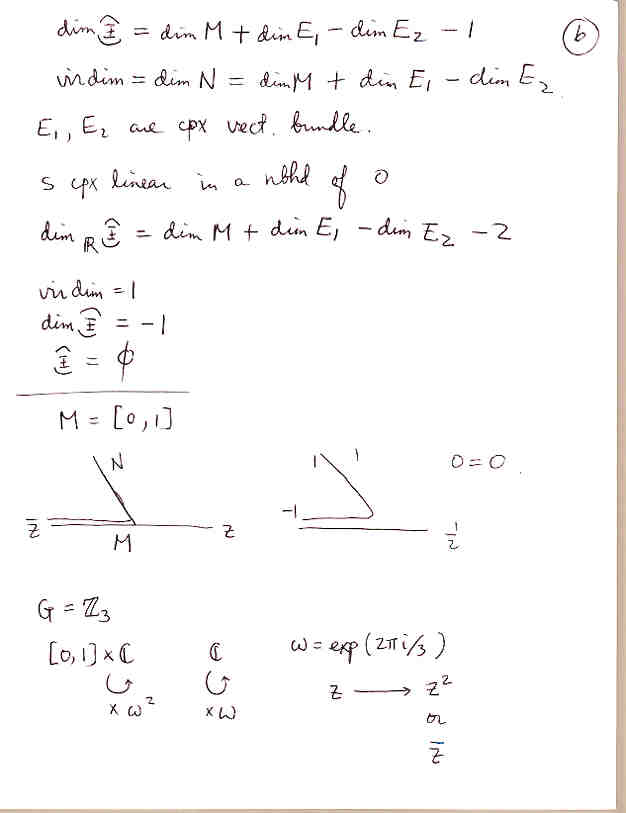 b
dim Ξ̂ = dim M + dim E₁ − dim E₂ − 1
virdim = dim N = dim M + dim E₁ − dim E₂.
E₁, E₂ are cpx vect. bundle.
s cpx linear in a nbhd of 0
dim_ℝ Ξ̂ = dim M + dim E₁ − dim E₂ − 2
vir dim = 1
dim Ξ̂ = −1
Ξ̂ = ϕ
M = [0,1]
N 1 1 0 = 0.
z̄ M z −1 1/2
G = ℤ₃
[0,1] × ℂ ℂ ω = exp(2πi/3)
× ω² × ω z ⟶ z²
or
z̄